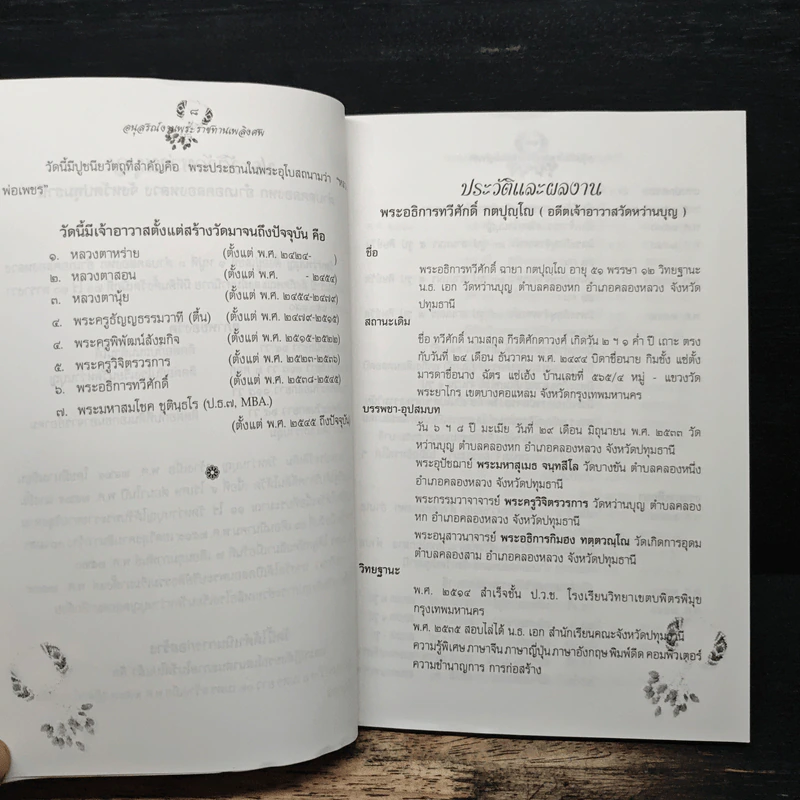 ๘
อนุสรณ์งานพระราชทานเพลิงศพ
วัดนี้มีปูชนียวัตถุที่สำคัญคือ พระประธานในพระอุโบสถนามว่า
พ่อเพชร"
วัดนี้มีเจ้าอาวาสตั้งแต่สร้างวัดมาจนถึงปัจจุบัน คือ
๑. หลวงตาหร่าย (ตั้งแต่ พ.ศ. ๒๔๒๔- )
๒. หลวงตาสอน (ตั้งแต่ พ.ศ. - ๒๔๕๔)
๓. หลวงตานุ้ย (ตั้งแต่ พ.ศ. ๒๔๕๔-๒๔๗๙)
๔. พระครูธัญญธรรมวาที (ตื้น) (ตั้งแต่ พ.ศ. ๒๔๗๙-๒๕๑๕)
๔. พระครูพิพัฒน์สังฆกิจ (ตั้งแต่ พ.ศ. ๒๕๑๕-๒๕๒๒)
๕. พระครูวิจิตรวรการ (ตั้งแต่ พ.ศ. ๒๕๒๓-๒๕๓๖)
๖. พระอธิการทวีศักดิ์ (ตั้งแต่ พ.ศ. ๒๕๓๘-๒๕๔๕)
๗. พระมหาสมโชค ชุตินฺธโร (ป.ธ.๗, MBA.)
(ตั้งแต่ พ.ศ. ๒๕๔๕ ถึงปัจจุบัน)
ประวัติและผลงาน
พระอธิการทวีศักดิ์ กตปุญฺโญ ( อดีตเจ้าอาวาสวัดหว่านบุญ )
ชื่อ
พระอธิการทวีศักดิ์ ฉายา กตปุญฺโญ อายุ ๕๑ พรรษา ๑๒ วิทยฐานะ
น.ธ. เอก วัดหว่านบุญ ตำบลคลองหก อำเภอคลองหลวง จังหวัด
ปทุมธานี
สถานะเดิม
ชื่อ ทวีศักดิ์ นามสกุล กีรติศักดาวงศ์ เกิดวัน ๒ ฯ ๑ ค่ำ ปี เถาะ ตรง
กับวันที่ ๒๔ เดือน ธันวาคม พ.ศ. ๒๔๙๔ บิดาชื่อนาย กิมซั้ง แซ่ตั้ง
มารดาชื่อนาง ฉัตร แซ่เฮ้ง บ้านเลขที่ ๕๖๕/๔ หมู่ - แขวงวัด
พระยาไกร เขตบางคอแหลม จังหวัดกรุงเทพมหานคร
บรรพชา-อุปสมบท
วัน ๖ ฯ ๘ ปี มะเมีย วันที่ ๒๙ เดือน มิถุนายน พ.ศ. ๒๕๓๓ วัด
หว่านบุญ ตำบลคลองหก อำเภอคลองหลวง จังหวัดปทุมธานี
พระอุปัชฌาย์ พระมหาสุเมธ จนฺทสีโล วัดบางขัน ตำบลคลองหนึ่ง
อำเภอคลองหลวง จังหวัดปทุมธานี
พระกรรมวาจาจารย์ พระครูวิจิตรวรการ วัดหว่านบุญ ตำบลคลอง
หก อำเภอคลองหลวง จังหวัดปทุมธานี
พระอนุสาวนาจารย์ พระอธิการกิมฮง ทตฺตวณฺโณ วัดเกิดการอุดม
ตำบลคลองสาม อำเภอคลองหลวง จังหวัดปทุมธานี
วิทยฐานะ
พ.ศ. ๒๕๑๔ สำเร็จชั้น ป.ว.ช. โรงเรียนวิทยาเขตบพิตรพิมุข
กรุงเทพมหานคร
พ.ศ. ๒๕๓๕ สอบไล่ได้ น.ธ. เอก สำนักเรียนคณะจังหวัดปทุมธานี
ความรู้พิเศษ ภาษาจีน ภาษาญี่ปุ่น ภาษาอังกฤษ พิมพ์ดีด คอมพิวเตอร์
ความชำนาญการ การก่อสร้าง